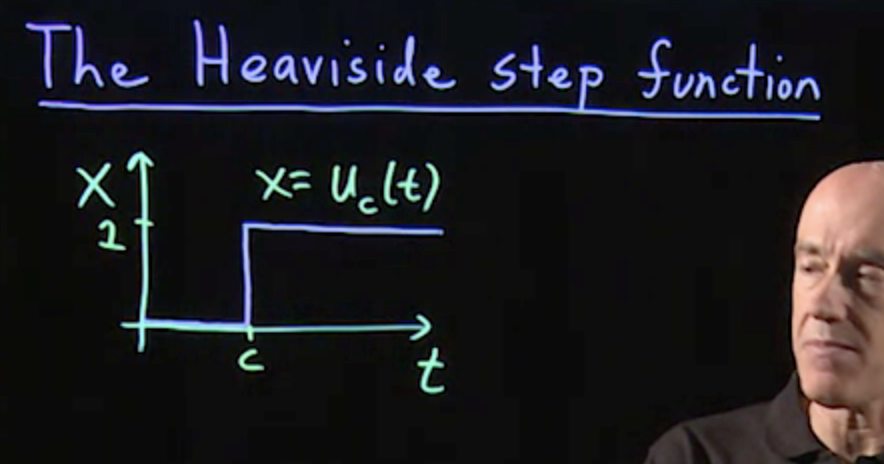 The Heaviside step function
X
x= u_c(t)
1
c
t